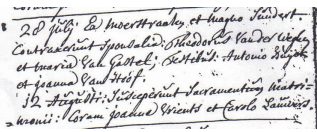 28 Julij. Ex moerstraaten, et magno Sundert.
Contraxerunt Sponsalia: Theodorus Vander
et maria Van Gastel; Testibus: Antonio
et joanna Van Hoof.
12 Augusti: Susceperunt Sacramentum matri-
=monii: Coram joanna Vrients et Carolo Lauwers.